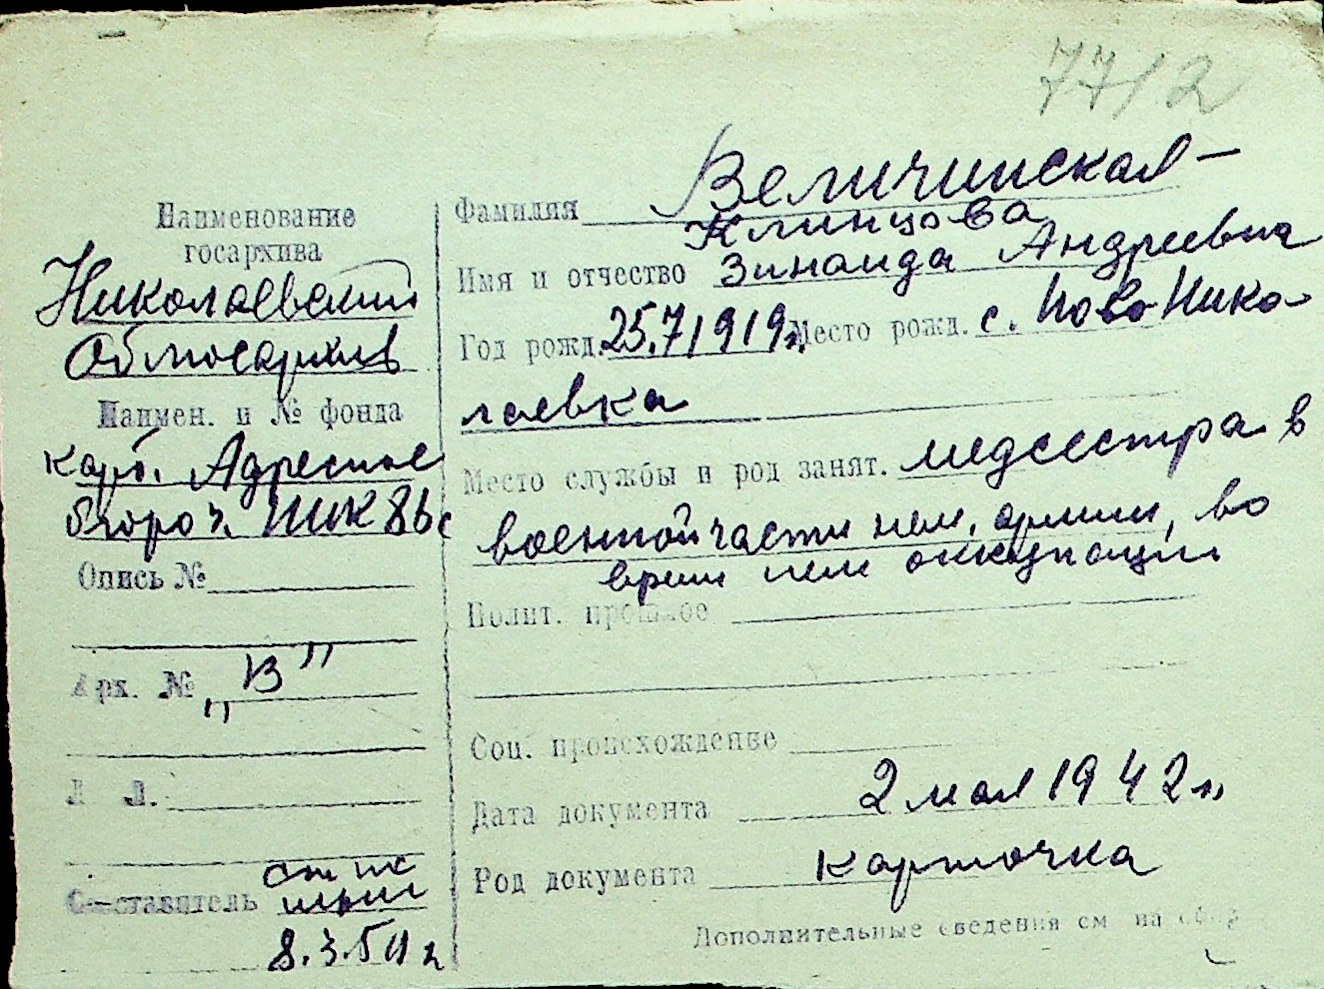 7712
Наименование
госархива
Николаевский
Облгосархив
Наимен. и № фонда
карт. Адресное
бюро г. НИК
Опись №
Арх. № „В”
Л Л.
Составитель
8.3.51 г
Фамилия Величинская-
Клинцова
Имя и отчество Зинаида Андреевна
Год рожд. 25.7 1919г. Место рожд. с. Ново Нико-
лаевка
Место службы и род занят. медсестра в
военной части нем. армии, во
врем нем оккупации
Полит. прошлое
Соц. происхождение
Дата документа 2 мая 1942 г.
Род документа карточка
Дополнительные сведения см на обор